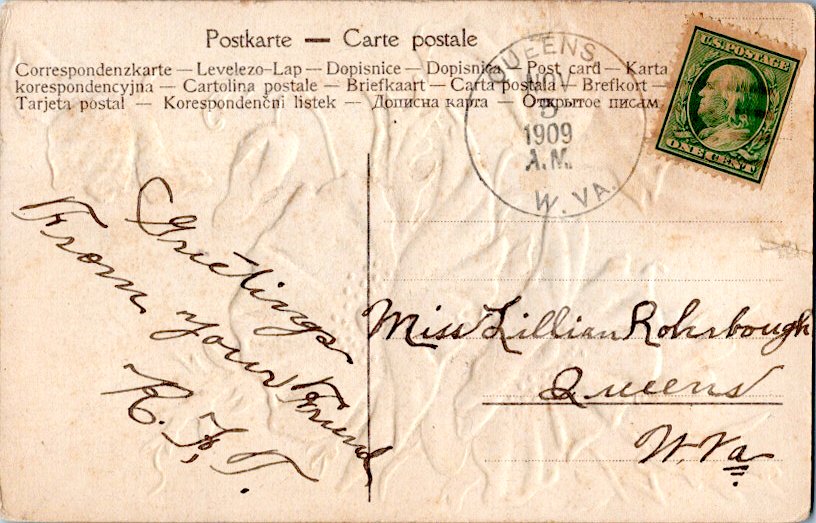 Postkarte — Carte postale
Correspondenzkarte — Levelezo-Lap — Dopisnice — Dopisnica — Post card — Karta
korespondencyjna — Cartolina postale — Briefkaart — Carta postala — Brefkort —
Tarjeta postal — Korespondenční listek — Дописна карта — Открытое писам
QUEENS
NOV
5
1909
A.M.
W. VA.
U.S. POSTAGE
ONE CENT
Greetings
From your Friend
R. F. T.
Miss Lillian Rohrbough
Queens
W. Va